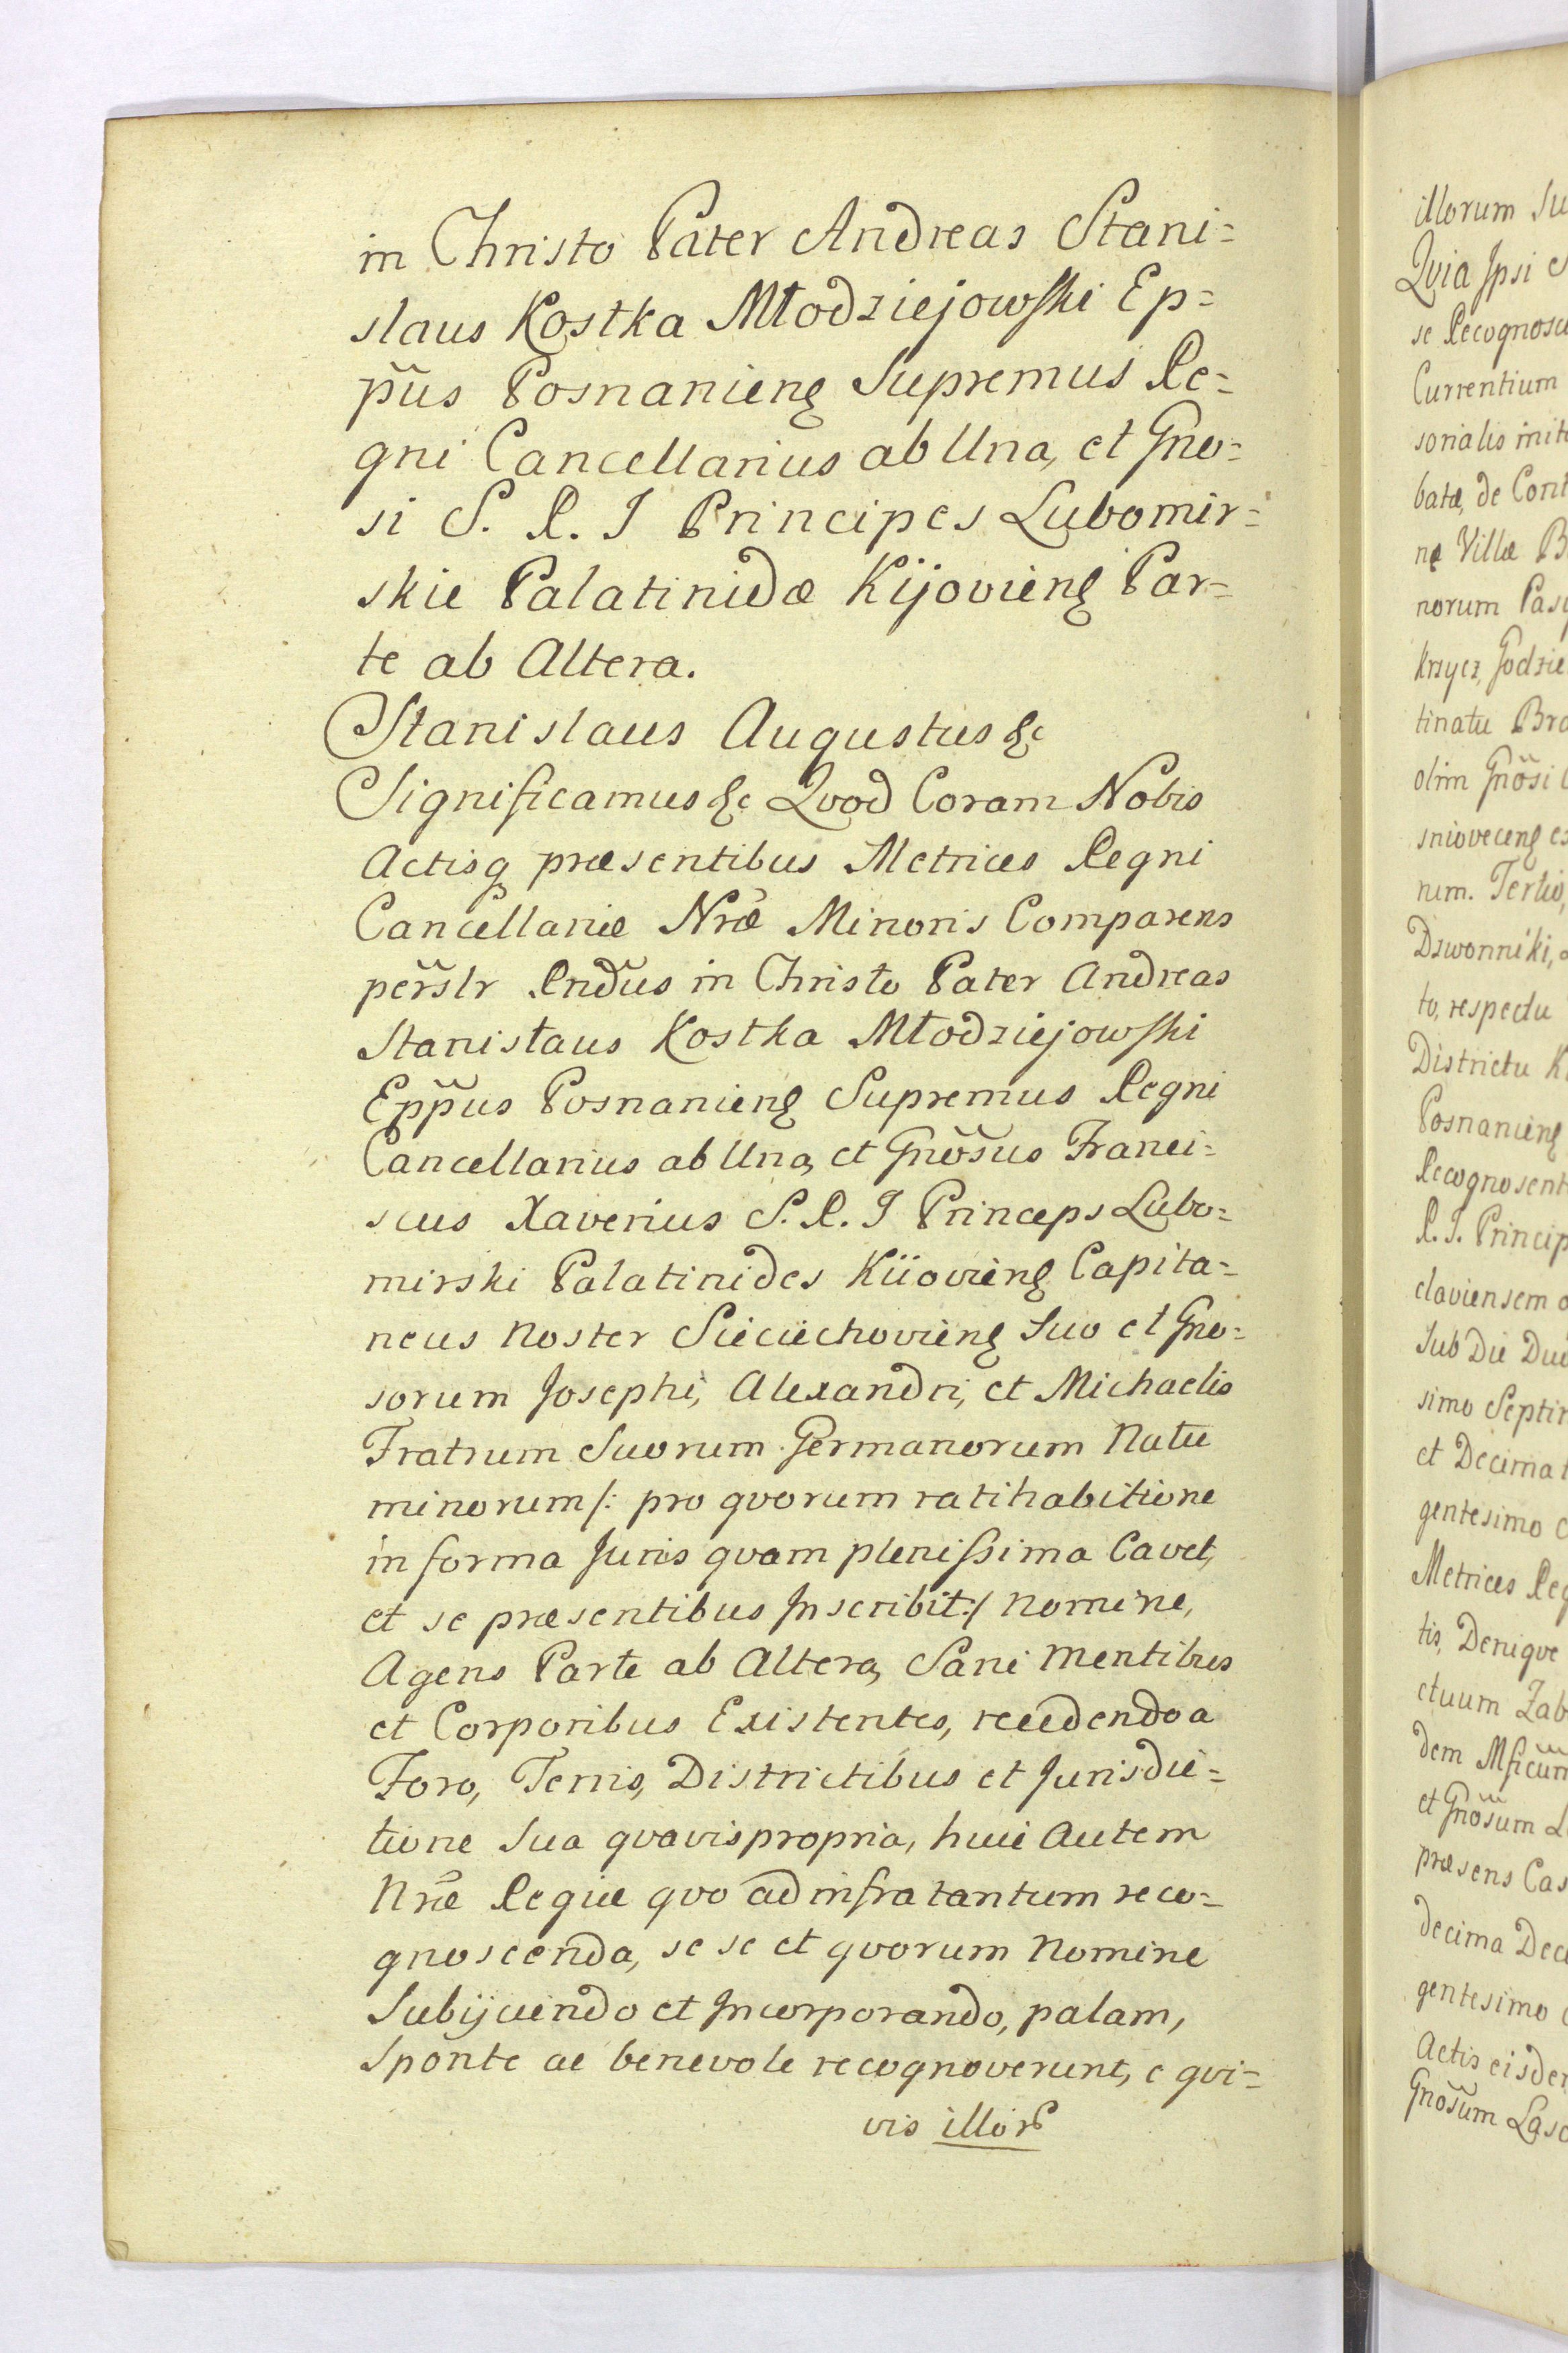 in Christo Pater Andreas Stani=
slaus Kostka Młodziejowski Ep=
p̃us Posnanieng Supremus Re=
gni Cancellarius ab Una, et Gno=
si S. R. I Principes Lubomir=
skie Palatinidæ Kijovieng Par=
te ab Altera.
Stanislaus Augustus &c
Significamus &c Qvod Coram Nobis
Actisq præsentibus Metrices Regni
Cancellariæ Nræ̃ Minoris Comparens
per̃slr Rnd̃us in Christo Pater Andreas
Stanisłaus Kostka Młodziejowski
Epp̃us Posnanieng Supremus Regni
Cancellarius ab Una, et Gnõsus Franci=
scus Xaverius S. R. I Princeps Lubo=
mirski Palatinides Kiiovieng Capita=
neus Noster Sieciechovieng Suo et Gno=
sorum Josephi, Alexandri, et Michaelis
Fratrum Suorum Germanorum Natu
minorum /: pro qvorum ratihabitione
in forma Juris qvam plenissima Cavet,
et se præsentibus Inscribit :/ Nomine,
Agens Parte ab Altera, Sani Mentibus
et Corporibus Existentes, recedendo a
Foro, Terris, Districtibus et Jurisdic=
tione Sua qvavis propria, huic Autem
Nræ̃ Regiæ qvo ad infra tantum reco=
gnoscenda, se se et qvorum Nomine
Subijciendo et Incorporando, palam,
Sponte ac benevole recognoverunt, e qvi=
vis illor
illorum Su
Qvia Ipsi
se Recognosc
Currentium
sorialis init
batæ, de Cont
næ Villæ B
norum Pas
krzycz, Godzie
tinatu Bra
olim Gnõsi
snioveceng ex
num. Tertio,
Dzwonniki,
to, respectu
Districtu K
Posnanieng
Recognosent
R. I. Princip
claviensem
Sub Die Du
simo Septi
et Decima
gentesimo
Metrices Reg
tis, Deniqve
ctuum Zab
dem Mficũm
et Gnõsum L
præsens Cas
decima Dec
gentesimo
Actis eisdem
Gnõsum Lasc